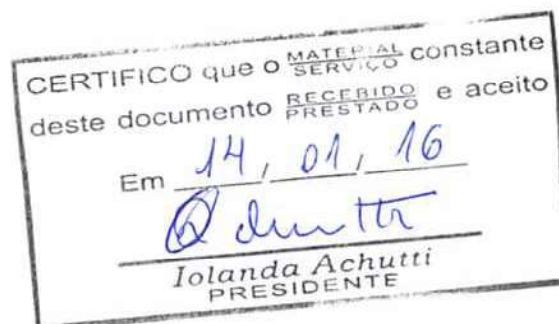 CERTIFICO que o MATERIAL SERVIÇO constante
deste documento RECEBIDO PRESTADO e aceito
Em 14, 01, 16
Iolanda Achutti
PRESIDENTE